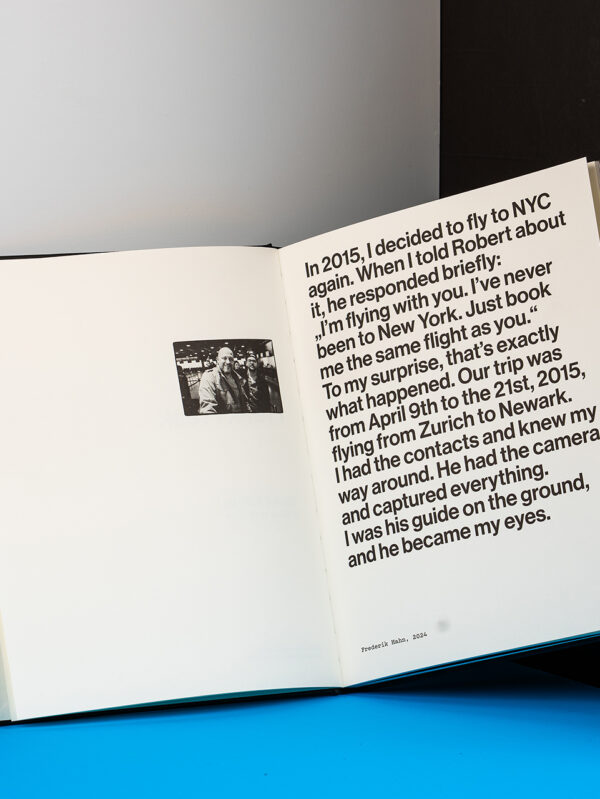 In 2015, I decided to fly to NYC
again. When I told Robert about
it, he responded briefly:
„I’m flying with you. I’ve never
been to New York. Just book
me the same flight as you.“
To my surprise, that’s exactly
what happened. Our trip was
from April 9th to the 21st, 2015,
flying from Zurich to Newark.
I had the contacts and knew my
way around. He had the camera
and captured everything.
I was his guide on the ground,
and he became my eyes.
Frederik Hahn, 2024